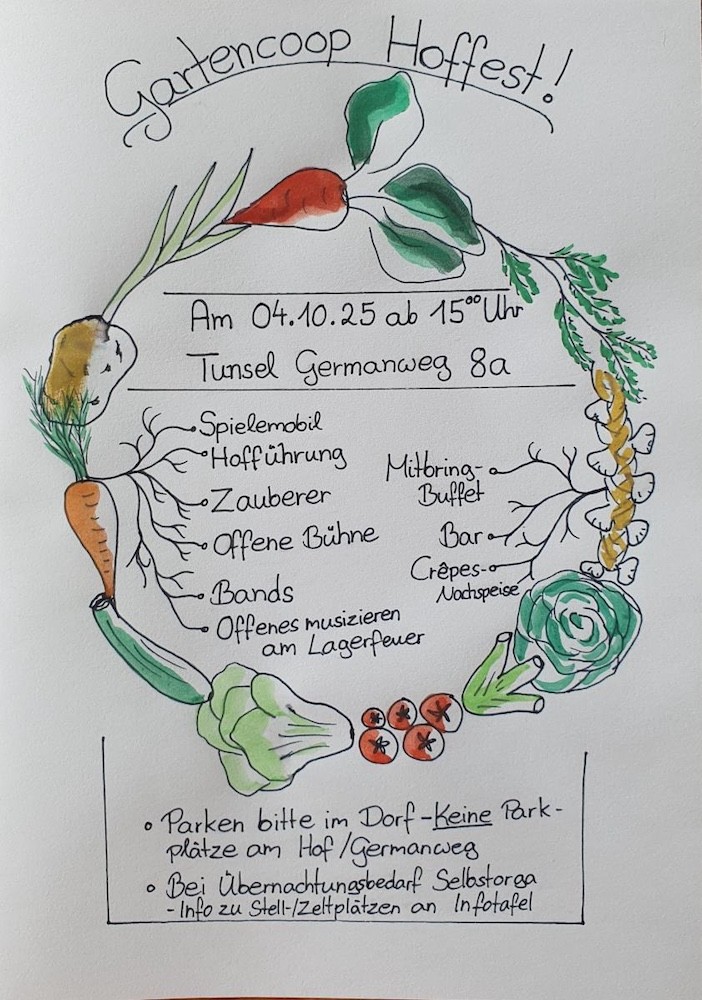 Gartencoop Hoffest!
Am 04.10.25 ab 15⁰⁰ Uhr
Tunsel Germanweg 8a
Spielemobil
Hofführung
Zauberer
Offene Bühne
Bands
Offenes musizieren
am Lagerfeuer
Mitbring-
Buffet
Bar
Crêpes-
Nachspeise
• Parken bitte im Dorf - Keine Park-
plätze am Hof / Germanweg
• Bei Übernachtungsbedarf Selbstorga
- Info zu Stell-/Zeltplätzen an Infotafel